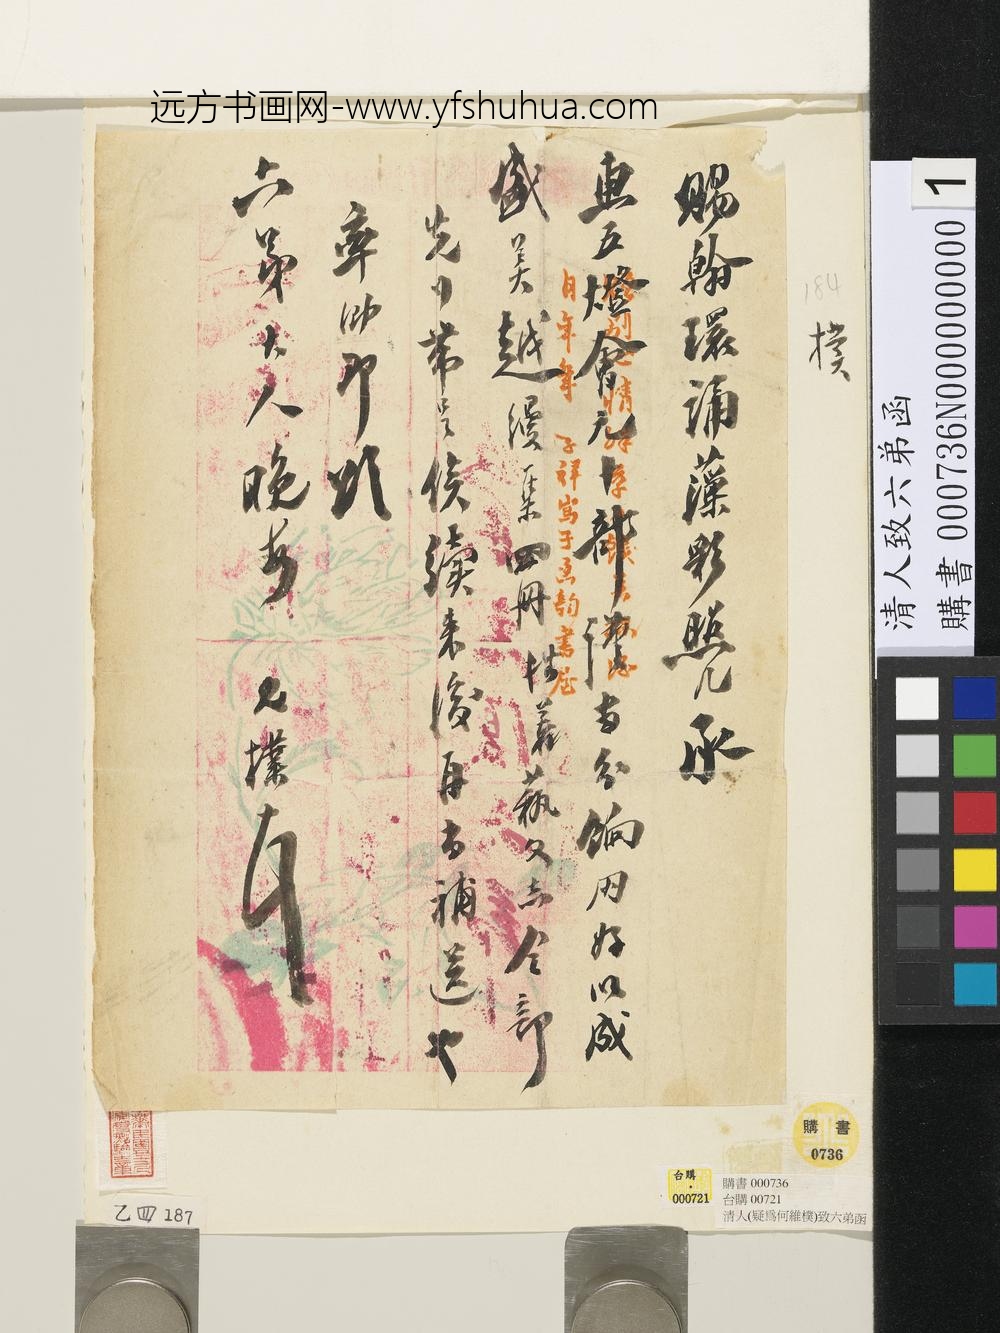 远方书画网-www.yfshuhua.com
賜翰環誦藻彩照几承
惠五燈會元十部謹當分餉同好以成
盛美越縵集四冊性義藝文志全部
先日帶呈俟續來後再當補送也
率泐即頌
六弟大人晚安 名樸
月年 子祥寫于 韵書屋
184
樸
清人致六弟函
購書 000736N000000000 1
購書
0736
台購
000721
購書 000736
台購 00721
清人(疑為何維樸)致六弟函
乙四 187